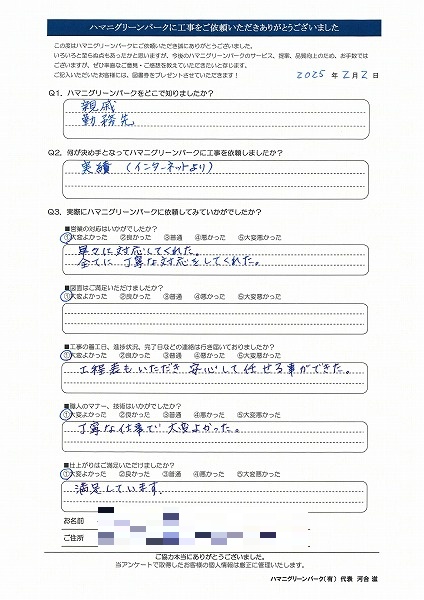 ハマニグリーンパークに工事をご依頼いただきありがとうございました
この度はハマニグリーンパークにご依頼いただき誠にありがとうございました。
いろいろと至らぬ点もあったかと思いますが、今後のハマニグリーンパークのサービス、提案、品質向上のため、お手数では
ございますが、ぜひ率直なご意見・ご感想を教えていただきたいと存じます。
ご記入いただいたお客様には、図書券をプレゼントさせていただきます!
2025 年 2月 2日
Q1. ハマニグリーンパークをどこで知りましたか?
親戚
勤務先
Q2. 何が決め手となってハマニグリーンパークに工事を依頼しましたか?
実績 (インターネットより)
Q3. 実際にハマニグリーンパークに依頼してみていかがでしたか?
■営業の対応はいかがでしたか?
①大変よかった ②良かった ③普通 ④悪かった ⑤大変悪かった
早々に対応してくれた。
全てに丁寧な対応をしてくれた。
■図面はご満足いただけましたか?
①大変よかった ②良かった ③普通 ④悪かった ⑤大変悪かった
■工事の着工日、進捗状況、完了日などの連絡は行き届いておりましたか?
①大変よかった ②良かった ③普通 ④悪かった ⑤大変悪かった
工程表もいただき安心して任せる事ができた。
■職人のマナー、技術はいかがでしたか?
①大変よかった ②良かった ③普通 ④悪かった ⑤大変悪かった
丁寧な仕事で大変よかった。
■仕上がりはご満足いただけましたか?
①大変よかった ②良かった ③普通 ④悪かった ⑤大変悪かった
満足しています。
お名前
ご住所
ご協力本当にありがとうございました。
当アンケートで取得したお客様の個人情報は厳正に管理いたします。
ハマニグリーンパーク(有) 代表 河合 道